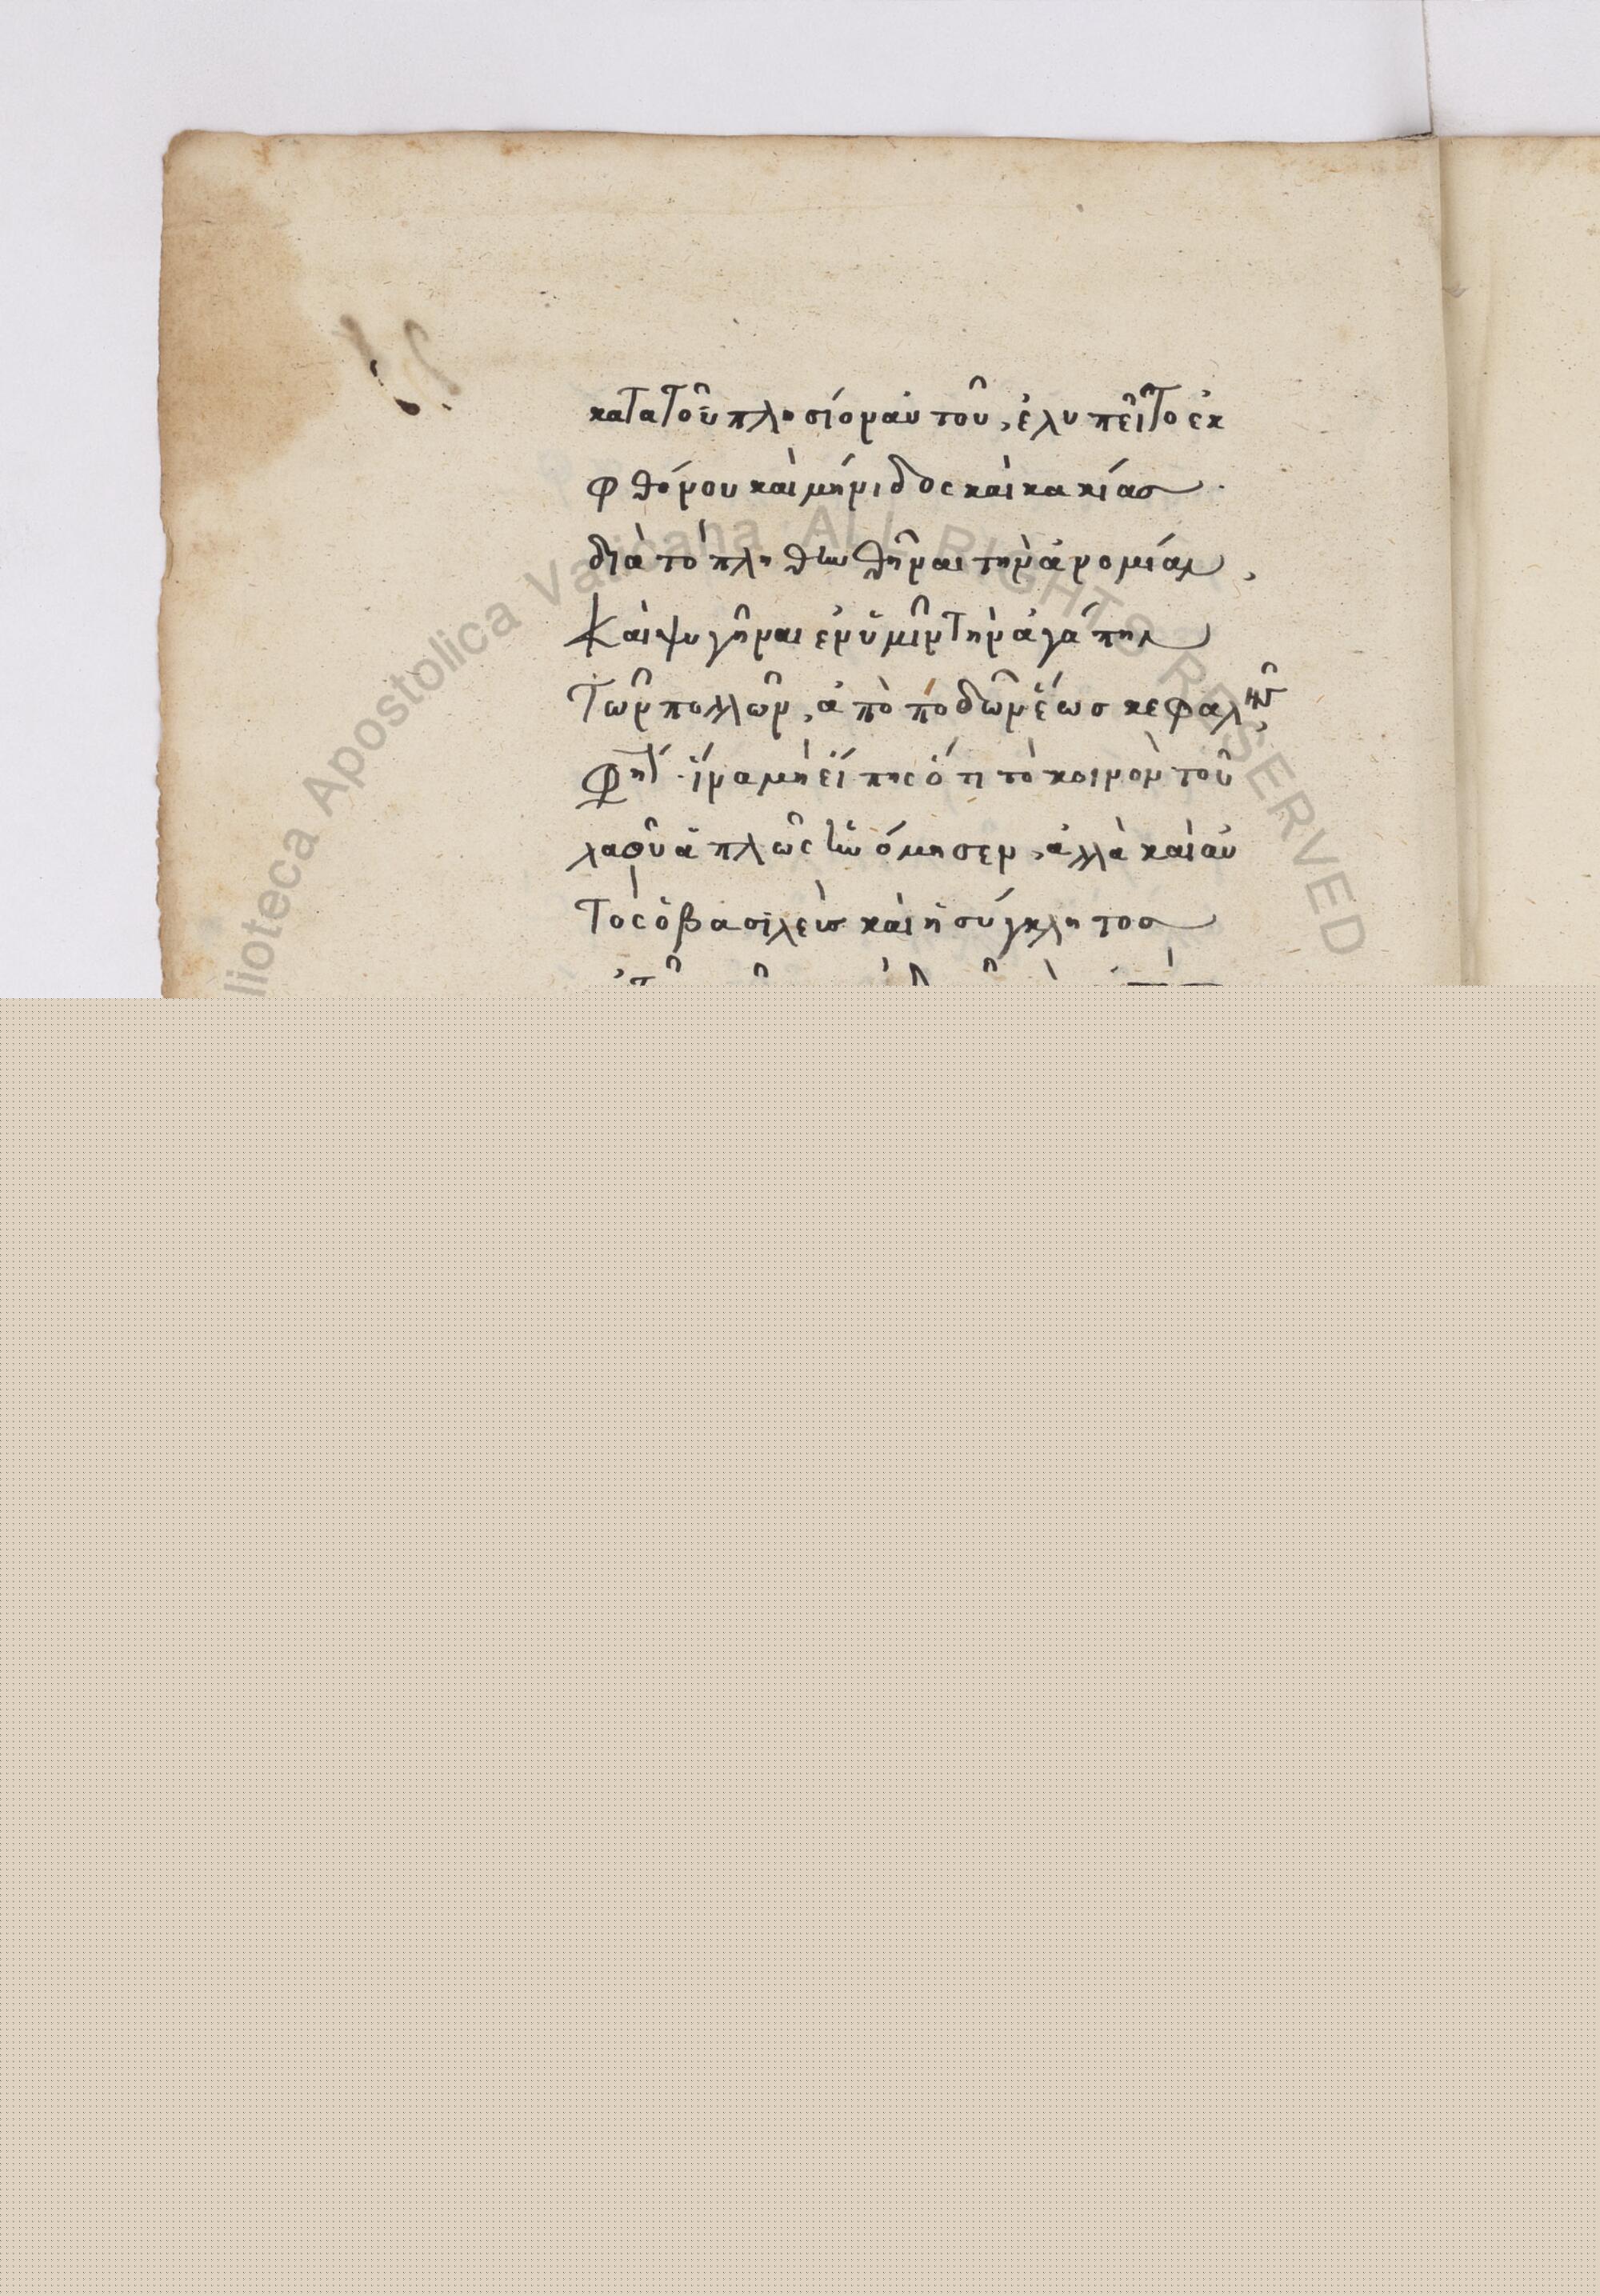 κατατοῦ πλησίον αὐτοῦ, ἐλυπεῖτο ἐκ
φθόνου καὶ μήνιδος καὶ κακίας.
διὰ τὸ πληθυνθῆναι τὴν ἀνομίαν,
Καὶ ψυγῆναι ἐν ὑμῖν τὴν ἀγάπην
Τῶν πολλῶν, ἀπὸ ποδῶν ἕως κεφαλῆν,
φησί. ἵνα μὴ εἴπης ὅτι τὸ κοινὸν τοῦ
λαοῦ ἁπλῶς ἠνόμησεν, ἀλλὰ καὶ αὐ
Τὸς ὁ βασιλεὺς καὶ ἡ σύγκλητος
Biblioteca Apostolica Vaticana ALL RIGHTS RESERVED